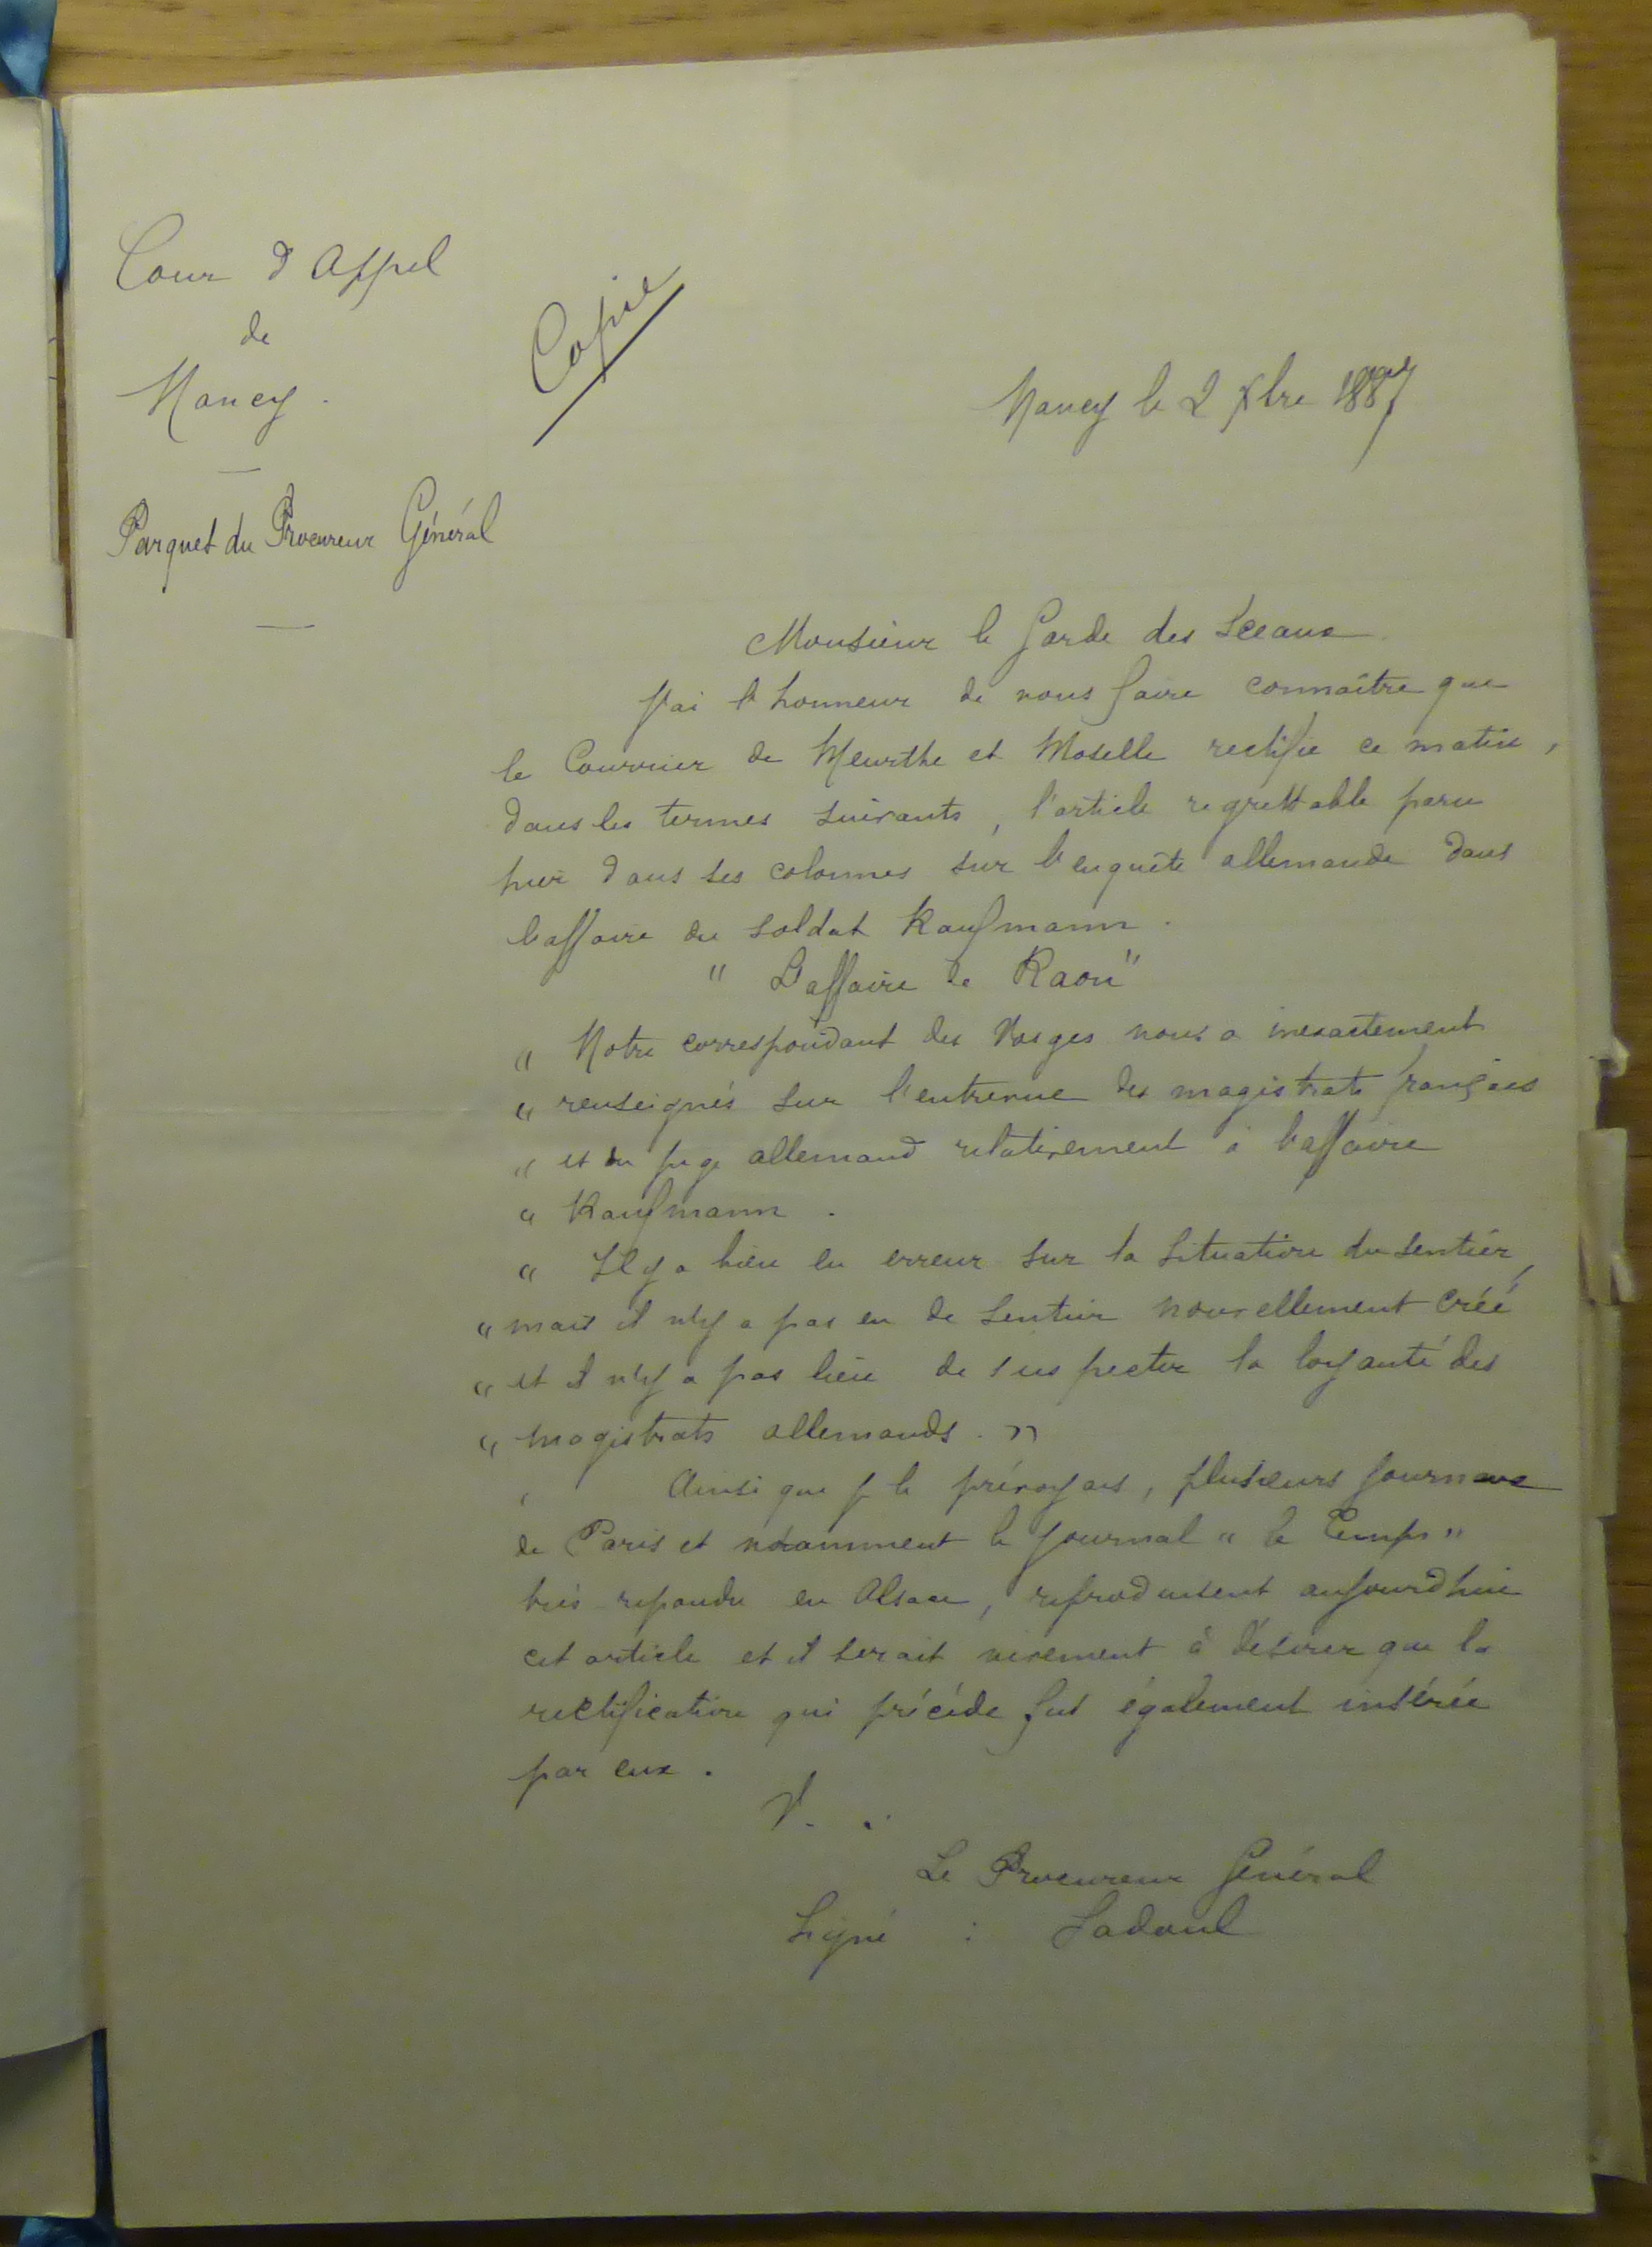 Cour d'Appel
de
Nancy.
Copie
Nancy le 2 Xbre 1887
Parquet du Procureur Général
Monsieur le Garde des Sceaux
J'ai l'honneur de vous faire connaître que
le Courrier de Meurthe et Moselle rectifie ce matin,
dans les termes suivants, l'article regrettable paru
hier dans ses colonnes sur l'enquête allemande dans
l'affaire du soldat Kaufmann.
" L'affaire de Raon"
" Notre correspondant des Vosges nous a inexactement
" renseignés sur l'entrevue des magistrats français
" et du juge allemand relativement à l'affaire
" Kaufmann.
" Il y a bien eu erreur sur la situation du sentier,
" mais il n'y a pas eu de sentier nouvellement créé
" et il n'y a pas lieu de suspecter la loyauté des
" magistrats allemands. "
Ainsi que je le prévoyais, plusieurs journaux
de Paris et notamment le journal " le Temps "
très répandu en Alsace, reproduisent aujourd'hui
cet article et il serait vivement à désirer que la
rectification qui précède fut également insérée
par eux.
Le Procureur Général
Signé : Sadoul